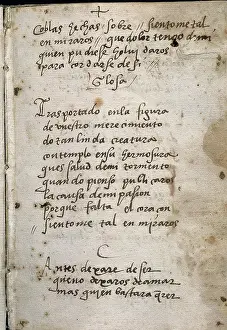 Coplas hechas sobre // sientome tal
en miraros // que dolor tengo de mi
quien pudiese holvidaros
para cordarse de si
Glosa
Trasportado enla figura
de vuestro merecimiento
do tan linda creatura
contemplo ensu hermosura
ques salud demi tormento
quando pienso publicaros
la causa demi pasion
porque falta el coraçon
sientome tal en miraros
Antes dexare de ser
queno dexaros deamar
mas quien bastara